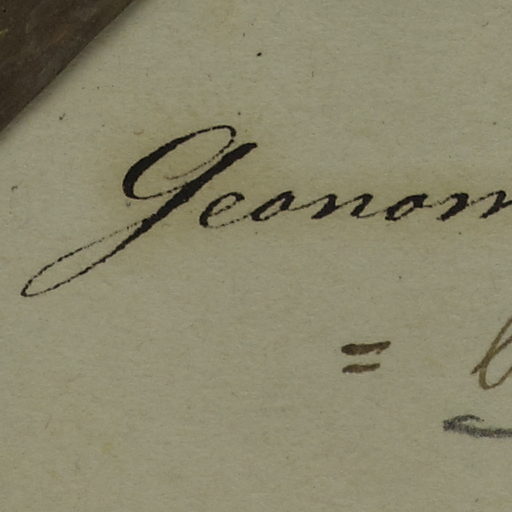 Geonom
=